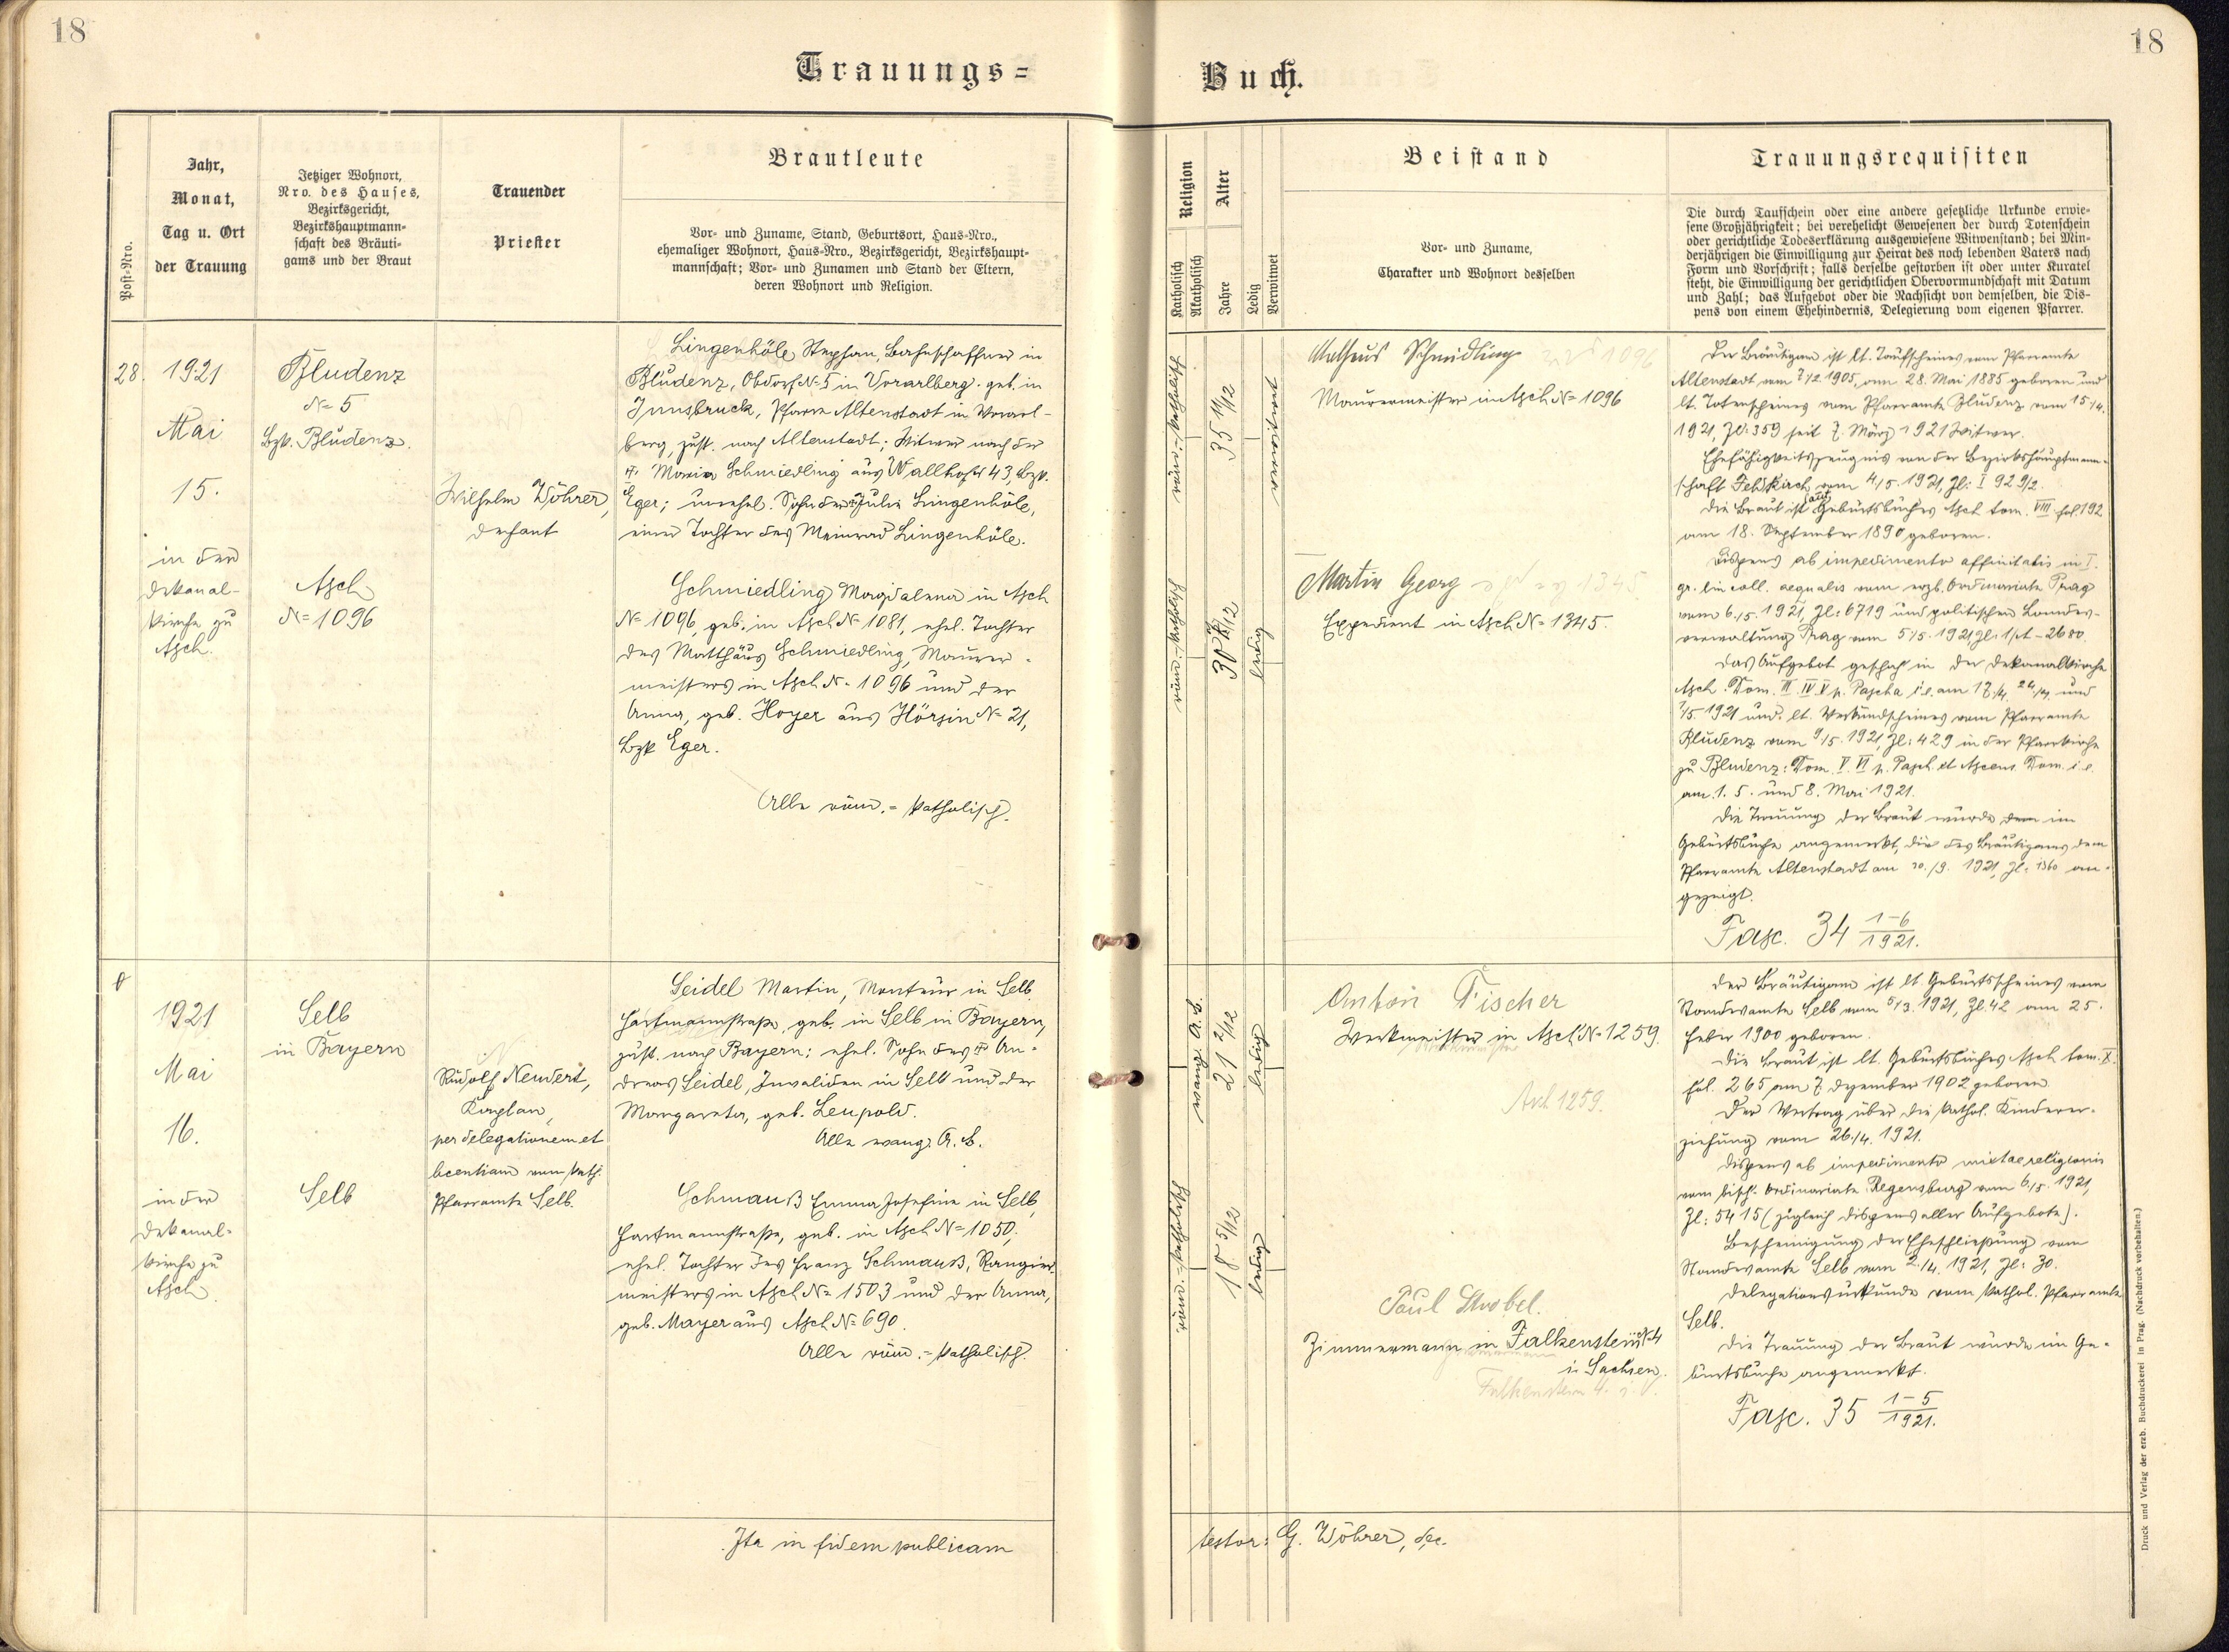 18
18
Trauungs=
Buch.
Post-Nro.
Jahr,
Monat,
Tag u. Ort
der Trauung
Jetziger Wohnort,
Nro. des Hauses,
Bezirksgericht,
Bezirkshauptmann=
schaft des Bräuti=
gams und der Braut
Trauender
Priester
Brautleute
Vor- und Zuname, Stand, Geburtsort, Haus-Nro.,
ehemaliger Wohnort, Haus-Nro., Bezirksgericht, Bezirkshaupt=
mannschaft; Vor- und Zunamen und Stand der Eltern,
deren Wohnort und Religion.
Religion
Katholisch
Akatholisch
Alter
Jahre
Ledig
Verwitwet
Beistand
Vor- und Zuname,
Charakter und Wohnort desselben
Trauungsrequisiten
Die durch Taufschein oder eine andere gesetzliche Urkunde erwie=
sene Großjährigkeit; bei verehelicht Gewesenen der durch Totenschein
oder gerichtliche Todeserklärung ausgewiesene Witwenstand; bei Min=
derjährigen die Einwilligung zur Heirat des noch lebenden Vaters nach
Form und Vorschrift; falls derselbe gestorben ist oder unter Kuratel
steht, die Einwilligung der gerichtlichen Obervormundschaft mit Datum
und Zahl; das Aufgebot oder die Nachsicht von demselben, die Dis=
pens von einem Ehehindernis, Delegierung vom eigenen Pfarrer.
28.
1921
Mai
15.
in der
Dekanal-
kirche zu
Asch.
Bludenz
N= 5
Bzk. Bludenz.
Asch
N= 1096
Wilhelm Wöhrer,
Dechant
Lingenhöle Stephan, Bahnschaffner in
Bludenz, Obdorf N= 5 in Vorarlberg. geb. in
Innsbruck, Pfarre Altenstadt in Vorarl-
berg, zust. nach Altenstadt; Witwer nach der
✝ Maria Schmiedling aus Wallhof N= 43, Bzk.
Eger; unehel. Sohn der ✝ Julie Lingenhöle,
einer Tochter des Meinrad Lingenhöle.
Schmiedling Magdalena in Asch
N= 1096, geb. in Asch N= 1081, ehel. Tochter
des Matthäus Schmiedling, Maurer-
meisters in Asch N= 1096 und der
Anna, geb. Hoyer aus Hörsin N= 21,
Bzk Eger.
Alle röm.=katholisch.
röm.=katholisch
35 11/12
verwitwet
röm.=katholisch
30 8/12
ledig
Matheus Schmidling
Maurermeister in Asch N= 1096
Martin Georg
Expedient in Asch N= 1345.
Der Bräutigam ist lt. Taufscheines vom Pfarramte
Altenstadt vom 7/2 1905, am 28. Mai 1885 geboren und
lt. Totenscheines vom Pfarramte Bludenz vom 15/4.
1921, Zl: 359 seit 7. März 1921 Witwer.
Ehefähigkeitszeugnis von der Bezirkshauptmann-
schaft Feldkirch vom 4/5. 1921, Zl: I 929/2.
Die Braut ist laut Geburtsbuches Asch tom. VIII. fol. 192
am 18. September 1890 geboren.
Dispens ab impedimento affinitatis in I.
gr. lin coll. aequalis vom erzb. Ordinariate Prag
vom 6./5. 1921, Zl: 6719 und politischen Landes-
verwaltung Prag vom 5/5. 1921 Zl: 1/A - 2680.
Das Aufgebot geschah in der Dekanalkirche
Asch. Dom. III. IV. V p. Pascha i.e. am 17./4. 24./4. und
1/5. 1921 und lt. Verkündscheines vom Pfarramte
Bludenz vom 9/5. 1921, Zl: 429 in der Pfarrkirche
zu Bludenz: Dom. V. VI p. Pasch. et Ascens. Dom. i.e.
am 1. 5. und 8. Mai 1921.
Die Trauung der Braut wurde im
Geburtsbuche angemerkt, die des Bräutigams dem
Pfarramte Altenstadt am 20./9. 1921, Zl: 1360 an-
gezeigt.
Fasc. 34 1-6/1921.
1921
Mai
16.
in der
Dekanal-
kirche zu
Asch
Selb
in Bayern
Selb
Rudolf Neudert,
Kaplan,
per delegationem et
licentiam vom kath.
Pfarramte Selb.
Seidel Martin, Monteur in Selb,
Hartmannstraße, geb. in Selb in Bayern,
zust. nach Bayern; ehel. Sohn des ✝ An-
dreas Seidel, Invaliden in Selb und der
Margareta, geb. Leupold.
Alle evang. A. B.
Schmauß Emma Josefine in Selb,
Hartmannstraße, geb. in Asch N= 1050,
ehel. Tochter des Franz Schmauß, Rangier-
meisters in Asch N= 1503 und der Anna,
geb. Mayer aus Asch N= 690.
Alle röm.=katholisch.
evang. A. B.
21 2/12
ledig
röm.=katholisch
18 5/12
ledig
Anton Fischer
Werkmeister in Asch N= 1259.
Asch 1259.
Paul Strobel.
Zimmermann in Falkenstein N= 4
in Sachsen.
Der Bräutigam ist lt. Geburtsscheines vom
Standesamte Selb vom 5/3. 1921, Zl. 42 am 25.
Feber 1900 geboren.
Die Braut ist lt. Geburtsbuches Asch tom. X.
fol. 265 am 7. Dezember 1902 geboren.
Der Vertrag über die kathol. Kinderer-
ziehung vom 26./4. 1921.
Dispens ab impedimento mixtae religionis
vom bisch. Ordinariate Regensburg vom 6./5. 1921,
Zl: 5415 (zugleich Dispens aller Aufgebote).
Bescheinigung der Eheschließung vom
Standesamte Selb vom 2./4. 1921, Zl: 30.
Delegationsurkunde vom kathol. Pfarramte
Selb.
Die Trauung der Braut wurde im Ge-
burtsbuche angemerkt.
Fasc. 35 1-5/1921.
Ita in fidem publicam
testor: G. Wöhrer, dec.
Druck und Verlag der erzb. Buchdruckerei in Prag. (Nachdruck vorbehalten.)